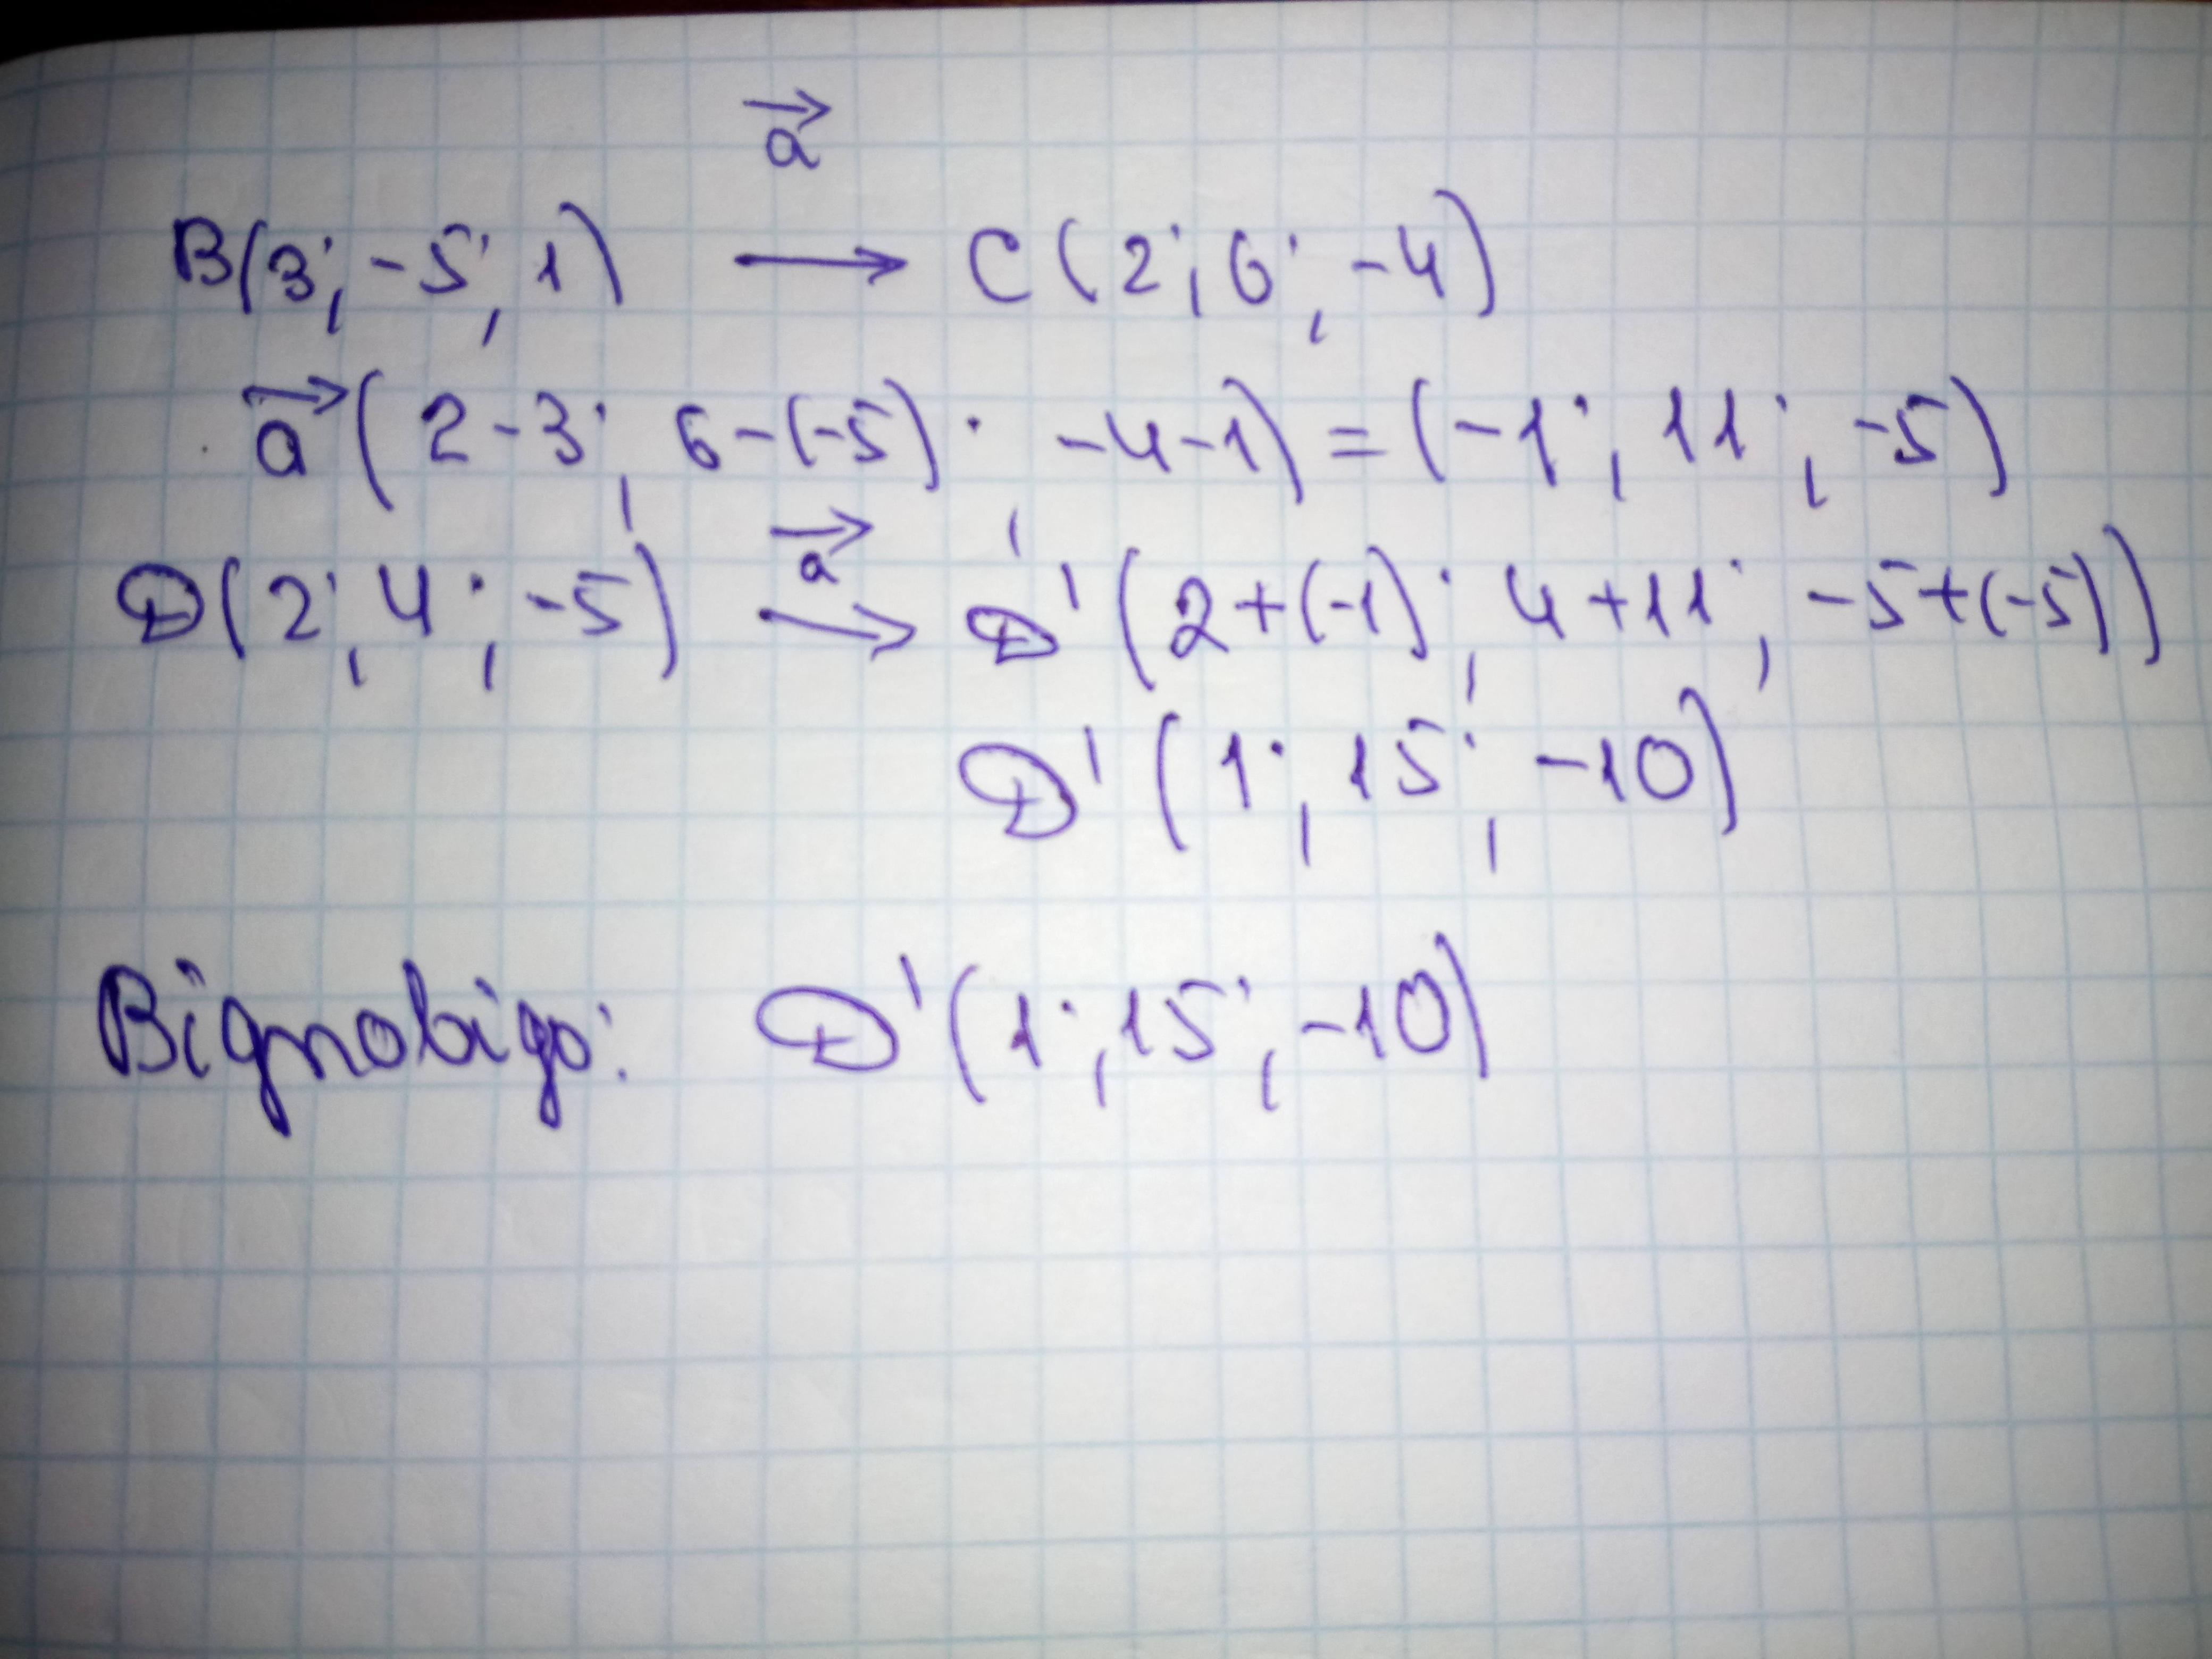 a⃗
B(3; -5; 1) → C(2; 6; -4)
a⃗(2-3; 6-(-5); -4-1) = (-1; 11; -5)
a⃗
D(2; 4; -5) → D'(2+(-1); 4+11; -5+(-5))
D'(1; 15; -10)
Відповідь: D'(1; 15; -10)